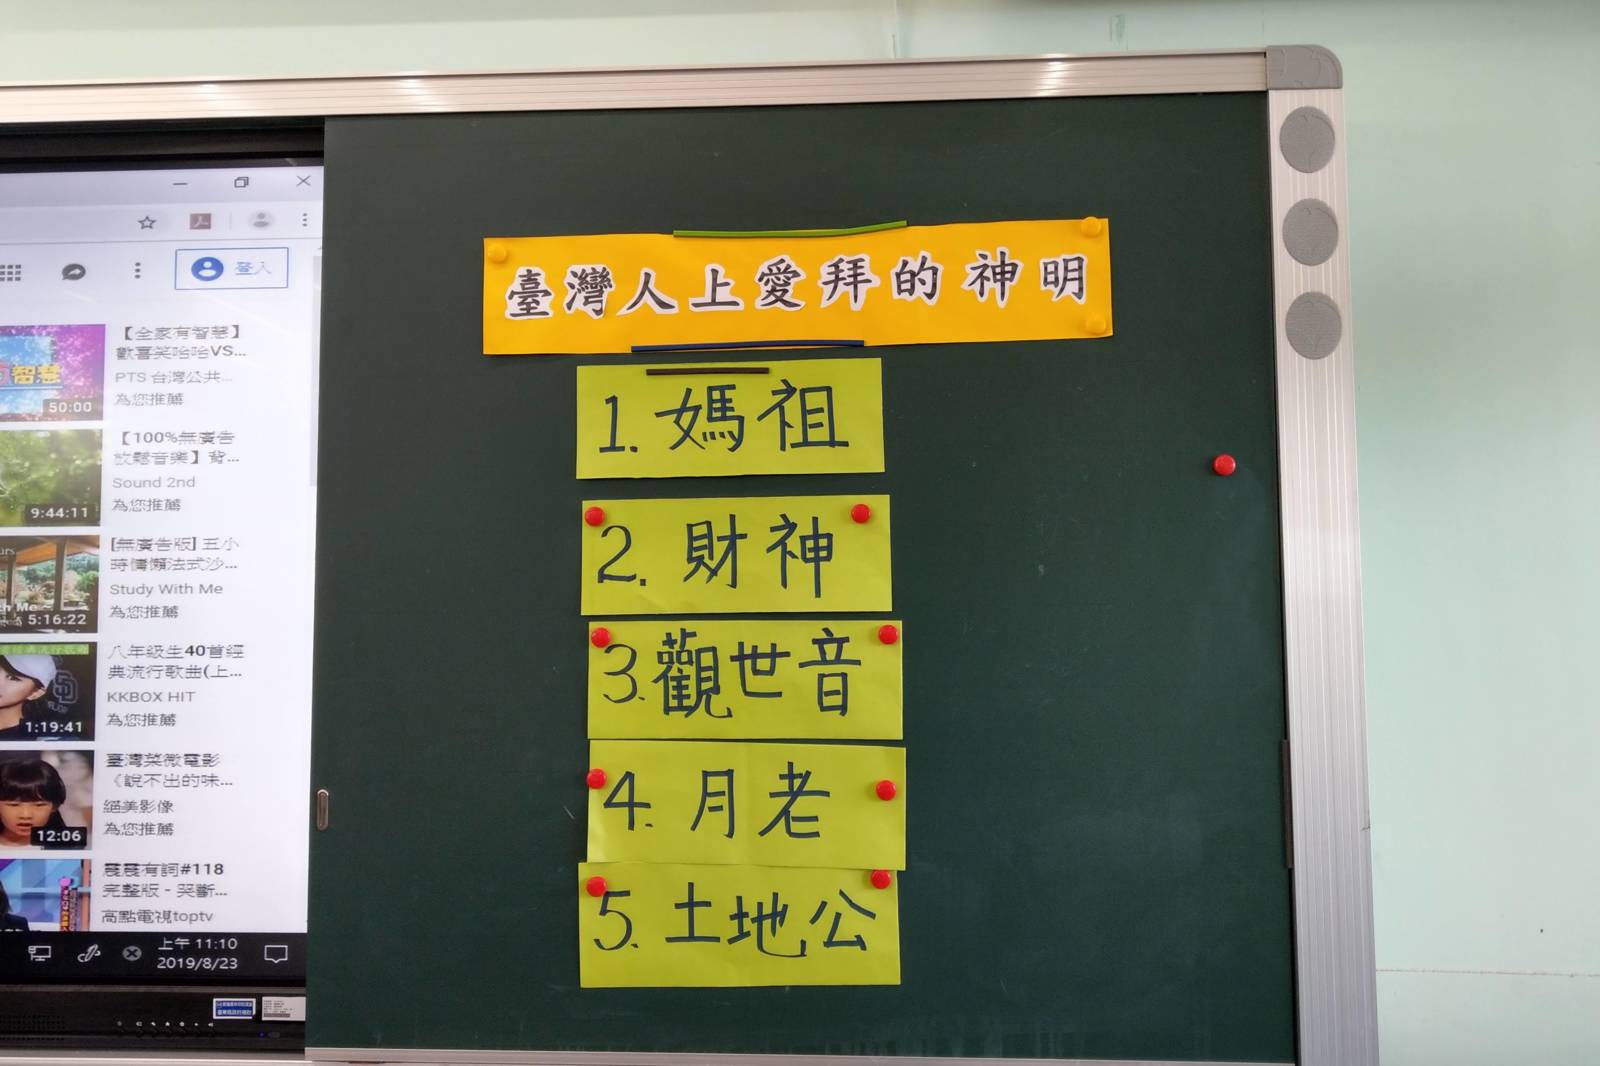 登入
【全家有智慧】
歡喜笑哈哈VS...
PTS 台灣公共...
為您推薦
智慧
50:00
【100%無廣告
放鬆音樂】背...
Sound 2nd
為您推薦
9:44:11
[無廣告版] 五小
時慵懶法式沙...
Study With Me
為您推薦
5:16:22
八年級生40首經
典流行歌曲(上...
KKBOX HIT
為您推薦
1:19:41
臺灣菜微電影
《說不出的味...
絕美影像
為您推薦
12:06
震震有詞#118
完整版 - 哭斷...
高點電視toptv
上午 11:10
2019/8/23
臺灣人上愛拜的神明
1. 媽祖
2. 財神
3. 觀世音
4. 月老
5. 土地公